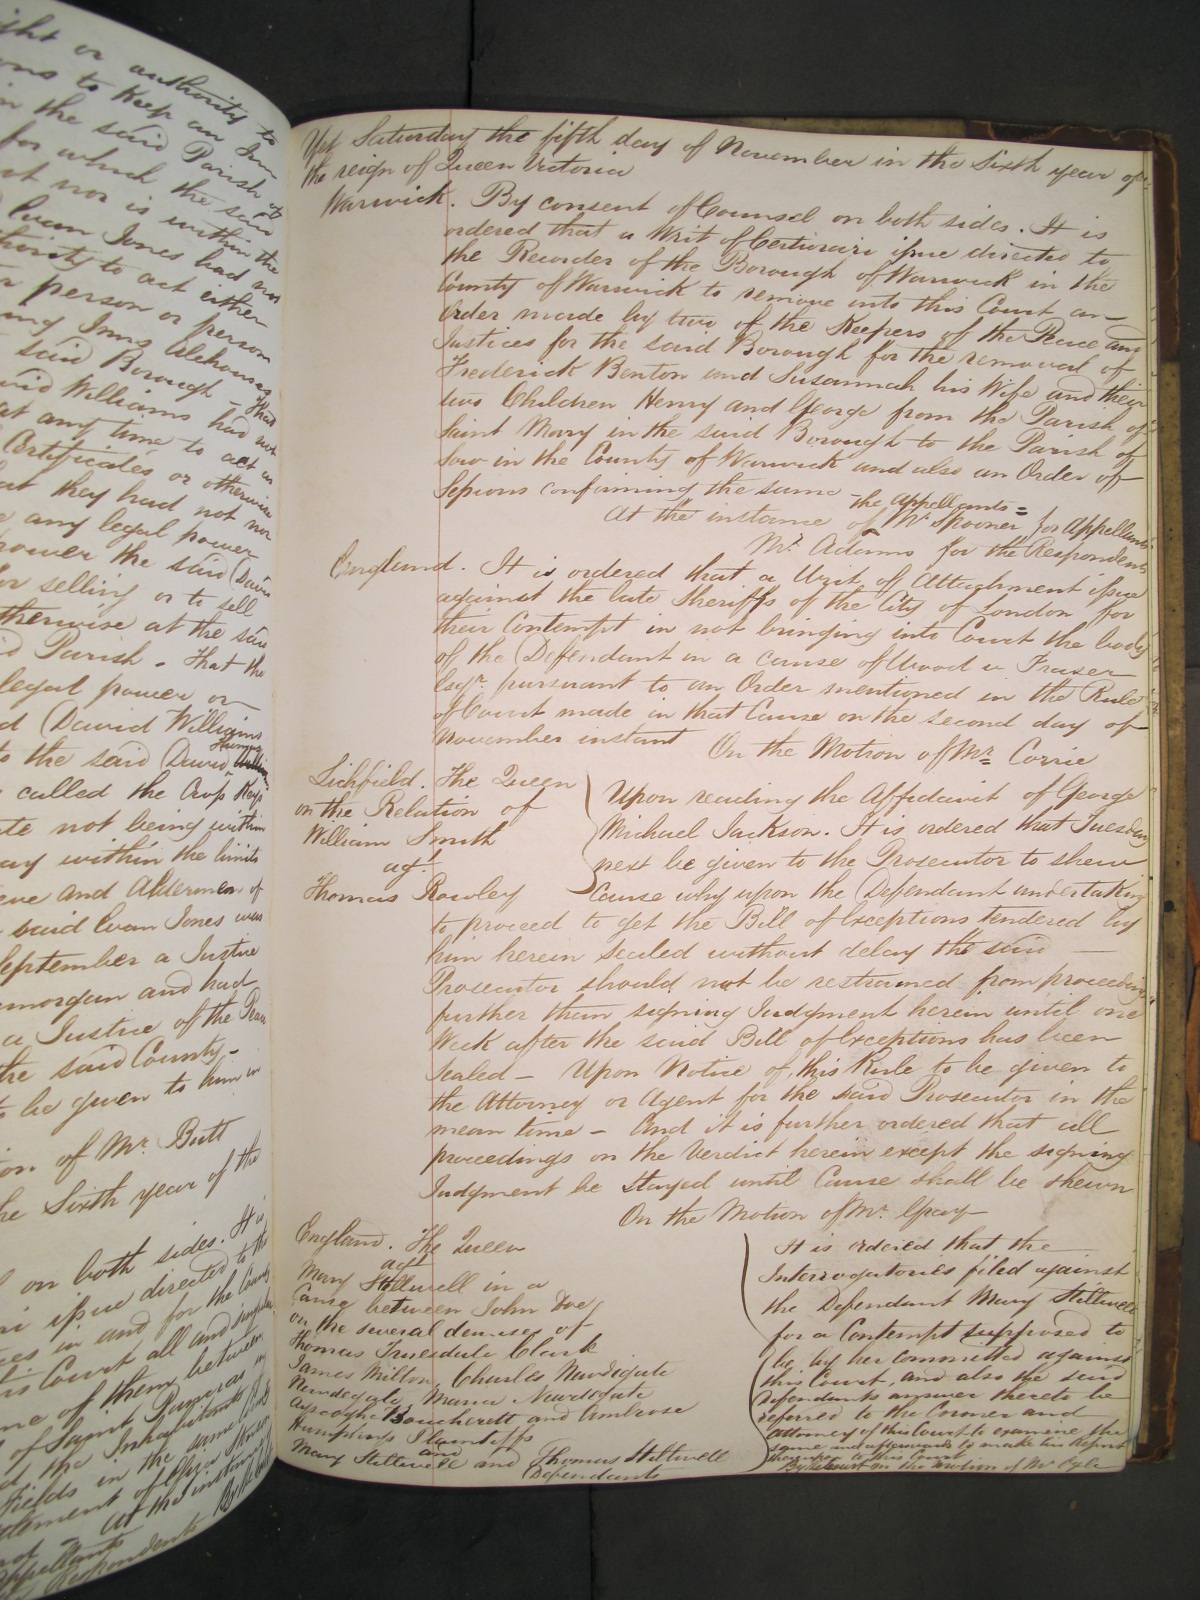 ight or authority to
ons to Keep an Inn
in the said Parish of
for which the said
nor is within the
Evan Jones had not
thority to act either
person or persons
Inns Alehouses
said Borough – That
vid Williams had not
at any time to act in
Certificates or otherwise
at they had not nor
any legal power
power the said David
for selling or to sell
therwise at the said
Parish – That the
legal power or
d David Williams
to the said David Thomas
called the Cross Keys
te not being within
ay within the limits
eve and Aldermen of
said Evan Jones was
September a Justice
amorgan and had
a Justice of the Peace
the said County –
to be given to him in
on of Mr. Butt
he Sixth year of the
on both sides. It is
issue directed to the
ces in and for the County
is Court all and singular
me of them between
of Saint Pancras in
the Inhabitants of
Fields in the same
At the instance
Appellants
Respondents
Yet Saturday the fifth day of November in the Sixth year of
the reign of Queen Victoria
Warwick. By consent of Counsel on both sides. It is
ordered that a Writ of Certiorari issue directed to
the Recorder of the Borough of Warwick in the
County of Warwick to remove into this Court an
Order made by two of the Keepers of the Peace and
Justices for the said Borough for the removal of
Frederick Benton and Susannah his Wife and their
two Children Henry and George from the Parish of
Saint Mary in the said Borough to the Parish of
Sow in the County of Warwick and also an Order of
Sessions confirming the same –
At the instance of the Appellants =
Mr. Spooner for Appellants
Mr. Adams for the Respondents
England. It is ordered that a Writ of Attachment issue
against the late Sheriffs of the City of London for
their Contempt in not bringing into Court the body
of the Defendant in a cause of Wood v Fraser
Esqr. pursuant to an Order mentioned in the Rule
of Court made in that Cause on the second day of
November instant On the Motion of Mr. Corrie
Lichfield. The Queen
on the Relation of
William Smith
agt.
Thomas Rowley
Upon reading the Affidavit of George
Michael Jackson. It is ordered that Tuesday
next be given to the Prosecutor to shew
Cause why upon the Defendant undertaking
to proceed to get the Bill of Exceptions tendered by
him herein sealed without delay the said –
Prosecutor should not be restrained from proceeding
further than signing Judgment herein until one
Week after the said Bill of Exceptions has been
sealed – Upon Notice of this Rule to be given to
the Attorney or Agent for the said Prosecutor in the
mean time – And it is further ordered that all
proceedings on the Verdict herein except the signing
Judgment be stayed until Cause shall be shewn
On the Motion of Mr. Gray
England. The Queen
agt
Mary Stillwell in a
Cause between John Doe
on the several demises of
Thomas Truesdale Clark
James Milton, Charles Newdigate
Newdegate, Maria Newdegate
Ayscoghe Boucherett and Ambrose
Humphrys Plaintiffs
and
Mary Stillwell and Thomas Stillwell
Defendants
It is ordered that the
Interrogatories filed against
the Defendant Mary Stillwell
for a Contempt supposed to
be by her committed against
this Court, and also the said
Defendants answer thereto be
referred to the Coroner and
Attorney of this Court to examine the
same and afterwards to make his Report
thereupon to this Court
By the Court On the Motion of Mr. Ogle